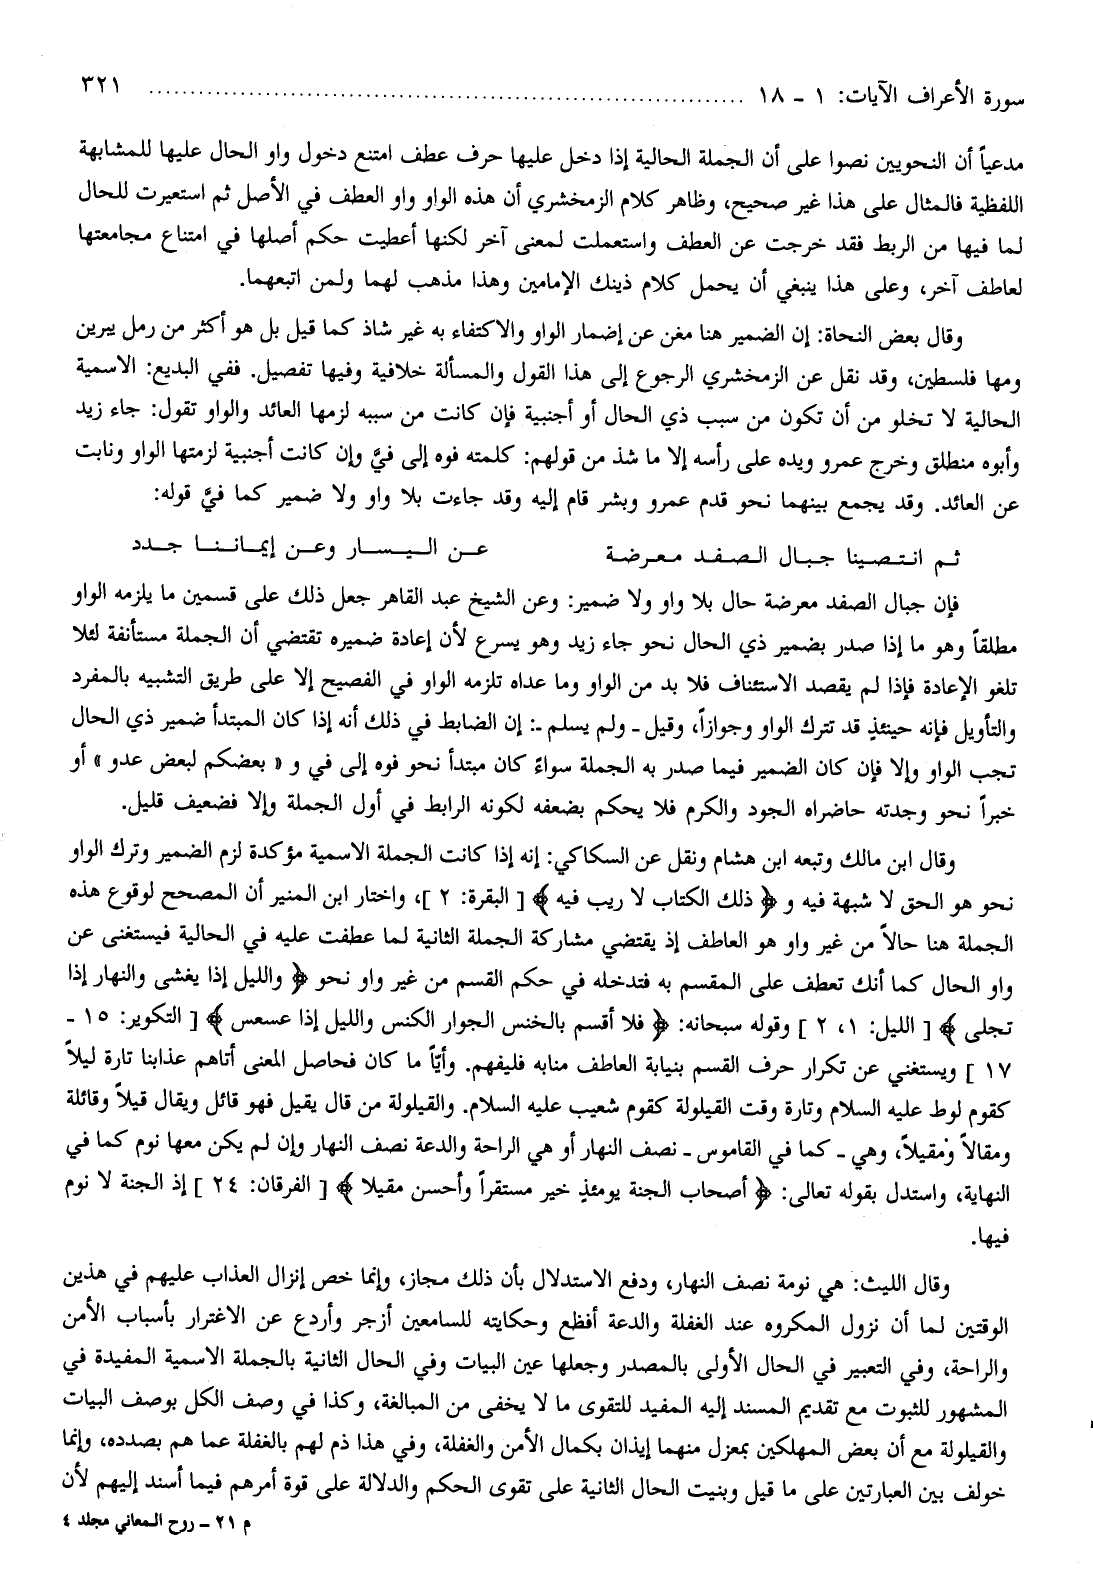 سورة الأعراف الآيات: ١ - ١٨ ........................................................................ ٣٢١
مدعياً أن النحويين نصوا على أن الجملة الحالية إذا دخل عليها حرف عطف امتنع دخول واو الحال عليها للمشابهة
اللفظية فالمثال على هذا غير صحيح، وظاهر كلام الزمخشري أن هذه الواو واو العطف في الأصل ثم استعيرت للحال
لما فيها من الربط فقد خرجت عن العطف واستعملت لمعنى آخر لكنها أعطيت حكم أصلها في امتناع مجامعتها
لعاطف آخر، وعلى هذا ينبغي أن يحمل كلام ذينك الإمامين وهذا مذهب لهما ولمن اتبعهما.
وقال بعض النحاة: إن الضمير هنا مغن عن إضمار الواو والاكتفاء به غير شاذ كما قيل بل هو أكثر من رمل يبرين
ومها فلسطين، وقد نقل عن الزمخشري الرجوع إلى هذا القول والمسألة خلافية وفيها تفصيل. ففي البديع: الاسمية
الحالية لا تخلو من أن تكون من سبب ذي الحال أو أجنبية فإن كانت من سببه لزمها العائد والواو تقول: جاء زيد
وأبوه منطلق وخرج عمرو ويده على رأسه إلا ما شذ من قولهم: كلمته فوه إلى فيَّ وإن كانت أجنبية لزمتها الواو ونابت
عن العائد. وقد يجمع بينهما نحو قدم عمرو وبشر قام إليه وقد جاءت بلا واو ولا ضمير كما فيَّ قوله:
ثم انتصينا جبال الصفد معرضة عن اليسار وعن إيماننا جدد
فإن جبال الصفد معرضة حال بلا واو ولا ضمير: وعن الشيخ عبد القاهر جعل ذلك على قسمين ما يلزمه الواو
مطلقاً وهو ما إذا صدر بضمير ذي الحال نحو جاء زيد وهو يسرع لأن إعادة ضميره تقتضي أن الجملة مستأنفة لئلا
تلغو الإعادة فإذا لم يقصد الاستئناف فلا بد من الواو وما عداه تلزمه الواو في الفصيح إلا على طريق التشبيه بالمفرد
والتأويل فإنه حينئذٍ قد تترك الواو وجوازاً، وقيل ـ ولم يسلم ـ: إن الضابط في ذلك أنه إذا كان المبتدأ ضمير ذي الحال
تجب الواو وإلا فإن كان الضمير فيما صدر به الجملة سواءً كان مبتدأ نحو فوه إلى في و « بعضكم لبعض عدو » أو
خبراً نحو وجدته حاضراه الجود والكرم فلا يحكم بضعفه لكونه الرابط في أول الجملة وإلا فضعيف قليل.
وقال ابن مالك وتبعه ابن هشام ونقل عن السكاكي: إنه إذا كانت الجملة الاسمية مؤكدة لزم الضمير وترك الواو
نحو هو الحق لا شبهة فيه و ﴿ ذلك الكتاب لا ريب فيه ﴾ [ البقرة: ٢ ]، واختار ابن المنير أن المصحح لوقوع هذه
الجملة هنا حالاً من غير واو هو العاطف إذ يقتضي مشاركة الجملة الثانية لما عطفت عليه في الحالية فيستغنى عن
واو الحال كما أنك تعطف على المقسم به فتدخله في حكم القسم من غير واو نحو ﴿ والليل إذا يغشى والنهار إذا
تجلى ﴾ [ الليل: ١، ٢ ] وقوله سبحانه: ﴿ فلا أقسم بالخنس الجوار الكنس والليل إذا عسعس ﴾ [ التكوير: ١٥ ـ
١٧ ] ويستغني عن تكرار حرف القسم بنيابة العاطف منابه فليفهم. وأيّاً ما كان فحاصل المعنى أتاهم عذابنا تارة ليلاً
كقوم لوط عليه السلام وتارة وقت القيلولة كقوم شعيب عليه السلام. والقيلولة من قال يقيل فهو قائل ويقال قيلاً وقائلة
ومقالاً ومقيلاً، وهي ـ كما في القاموس ـ نصف النهار أو هي الراحة والدعة نصف النهار وإن لم يكن معها نوم كما في
النهاية، واستدل بقوله تعالى: ﴿ أصحاب الجنة يومئذٍ خير مستقراً وأحسن مقيلا ﴾ [ الفرقان: ٢٤ ] إذ الجنة لا نوم
فيها.
وقال الليث: هي نومة نصف النهار، ودفع الاستدلال بأن ذلك مجاز، وإنما خص إنزال العذاب عليهم في هذين
الوقتين لما أن نزول المكروه عند الغفلة والدعة أفظع وحكايته للسامعين أزجر وأردع عن الاغترار بأسباب الأمن
والراحة، وفي التعبير في الحال الأولى بالمصدر وجعلها عين البيات وفي الحال الثانية بالجملة الاسمية المفيدة في
المشهور للثبوت مع تقديم المسند إليه المفيد للتقوى ما لا يخفى من المبالغة، وكذا في وصف الكل بوصف البيات
والقيلولة مع أن بعض المهلكين بمعزل منهما إيذان بكمال الأمن والغفلة، وفي هذا ذم لهم بالغفلة عما هم بصدده، وإنما
خولف بين العبارتين على ما قيل وبنيت الحال الثانية على تقوى الحكم والدلالة على قوة أمرهم فيما أسند إليهم لأن
م ٢١ ـ روح المعاني مجلد ٤